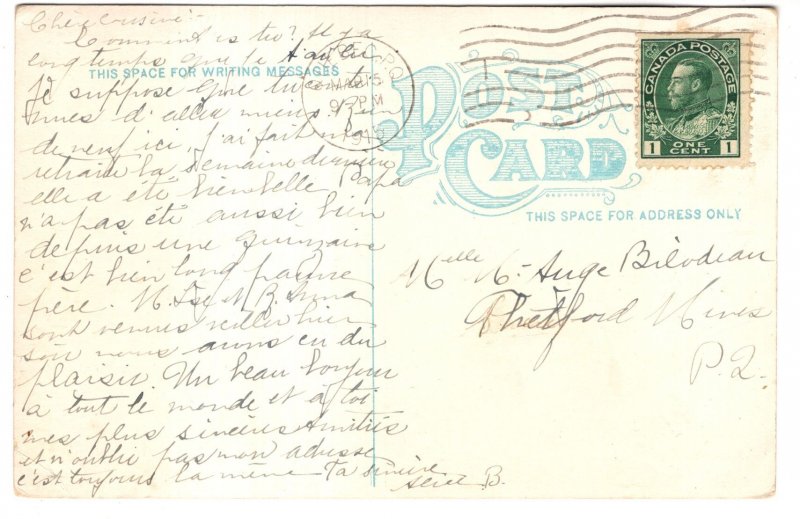 Chère cousine:-
Comment es tu? Il y a
longtemps que je t'ai
THIS SPACE FOR WRITING MESSAGES
Je suppose que tu
d'aller mieux. Rien
de neuf ici, j'ai fait ma
retraite la semaine dernière
elle a été bien belle Papa
n'a pas été aussi bien
depuis une quinzaine
c'est bien long pauvre
père. M. & B.
sont venues veiller hier
soir nous avons eu du
plaisir. Un beau bonjour
à tout le monde et à toi
mes plus sincères amitiés
et n'oublie pas mon adresse
c'est toujours la même Ta
B.
P.Q.
MAR 15
9 PM
1915
POST
CARD
CANADA POSTAGE
1 ONE CENT 1
THIS SPACE FOR ADDRESS ONLY
Melle M- Ange Bilodeau
Thetford Mines
P.Q.